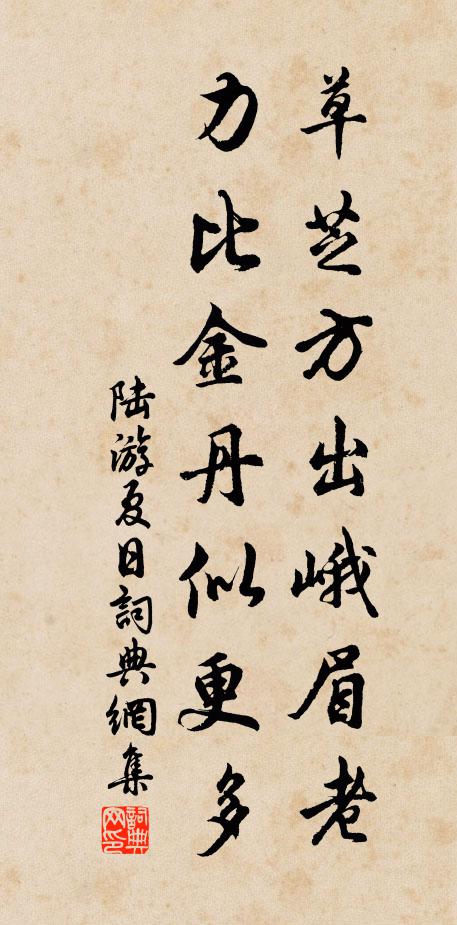 草芝方出峨眉老
力比金丹似更多
陆游夏日詞典網集
詞典網印